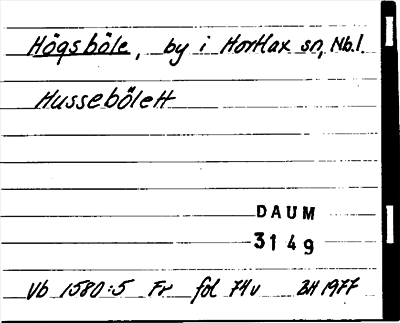 Högsböle, by i Hortlax sn, Nb.l.
Hussebölett
DAUM
3149
Vb 1580:5 Fr fol 74v BH 1977